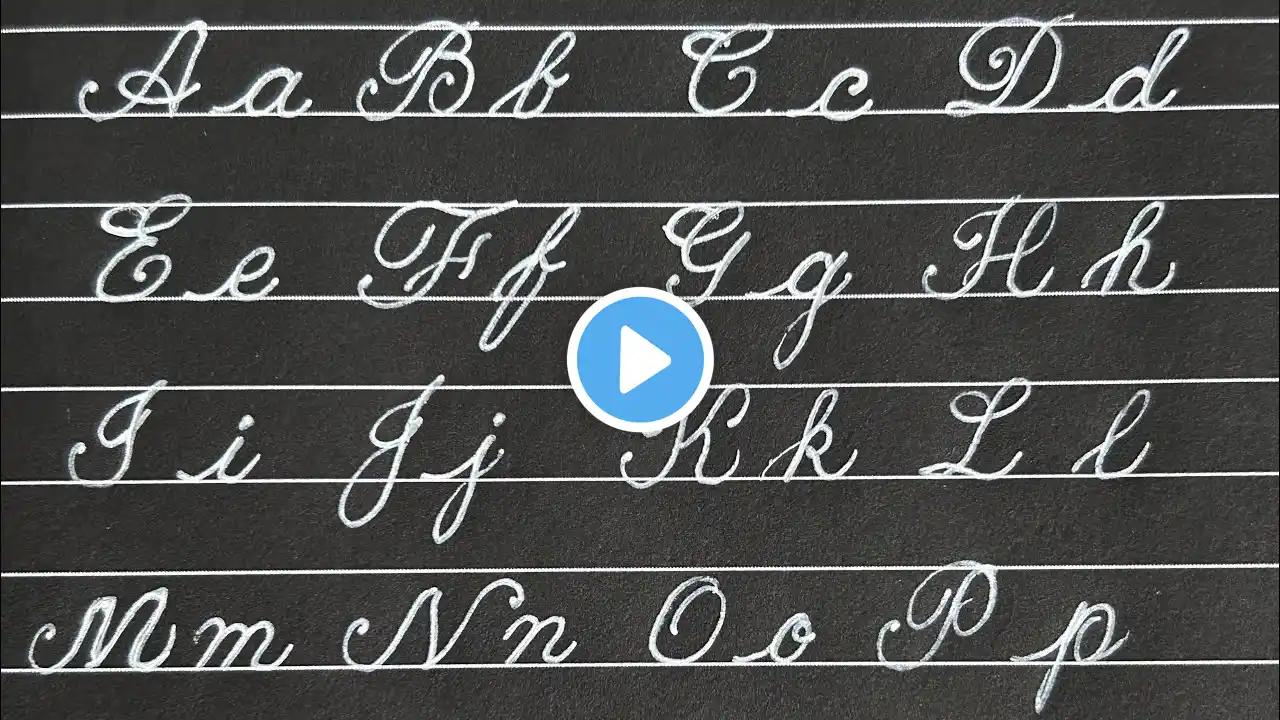 A a B b C c D d
E e F f G g H h
I i J j K k L l
M m N n O o P p